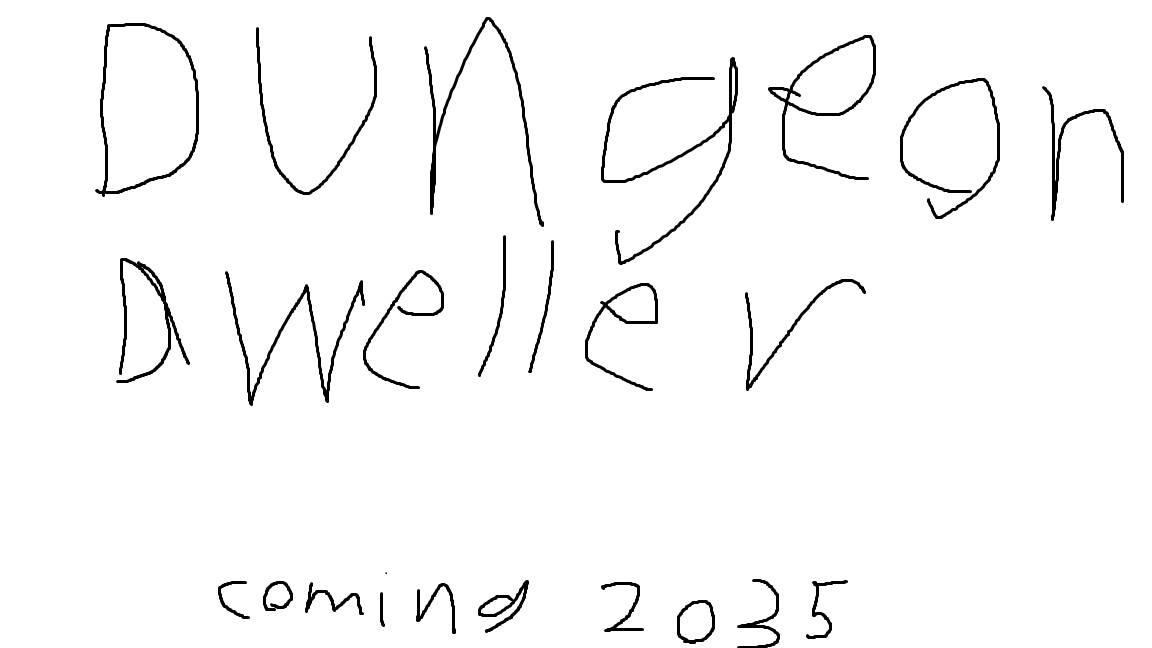 Dungeon
Dweller
coming 2035